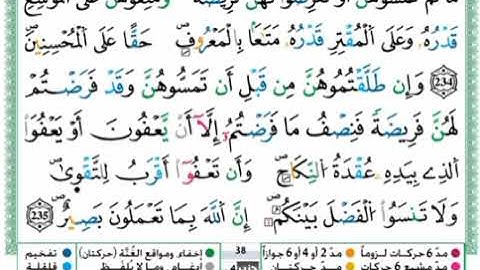 مَا لَمْ تَمَسُّوهُنَّ أَوْ تَفْرِضُوا لَهُنَّ فَرِيضَةً وَمَتِّعُوهُنَّ عَلَى اَلْمُوسِعِ
قَدْرُهُۥ وَعَلَى اَلْمُقْتِرِ قَدْرُهُۥ مَتَٰعاَۢ بِالْمَعْرُوفِۖ حَقّاً عَلَى اَلْمُحْسِنِينَۖ
234 وَإِن طَلَّقْتُمُوهُنَّ مِن قَبْلِ أَن تَمَسُّوهُنَّ وَقَدْ فَرَضْتُمْ
لَهُنَّ فَرِيضَةً فَنِصْفُ مَا فَرَضْتُمُۥٓ إِلَّآ أَنْ يَّعْفُونَ أَوْ يَعْفُوَا
اَلذِے بِيَدِهِۦ عُقْدَةُ اُلنِّكَاحِۖ وَأَن تَعْفُوٓاْ أَقْرَبُ لِلتَّقْو۪يٰۖ
وَلَا تَنسَوُاْ اُلْفَضْلَ بَيْنَكُمُۥٓۖ إِنَّ اَللَّهَ بِمَا تَعْمَلُونَ بَصِيرٌۖ 235
مدّ 6 حركات لزوماً مدّ 2 أو 4 أو 6 جوازاً 38 إخفاء ومواقع الغُنَّة (حركتان) تفخيم
مدّ مشبع 6 حركات مدّ حركتان إدغام، وما لا يُلفظ قلقلة